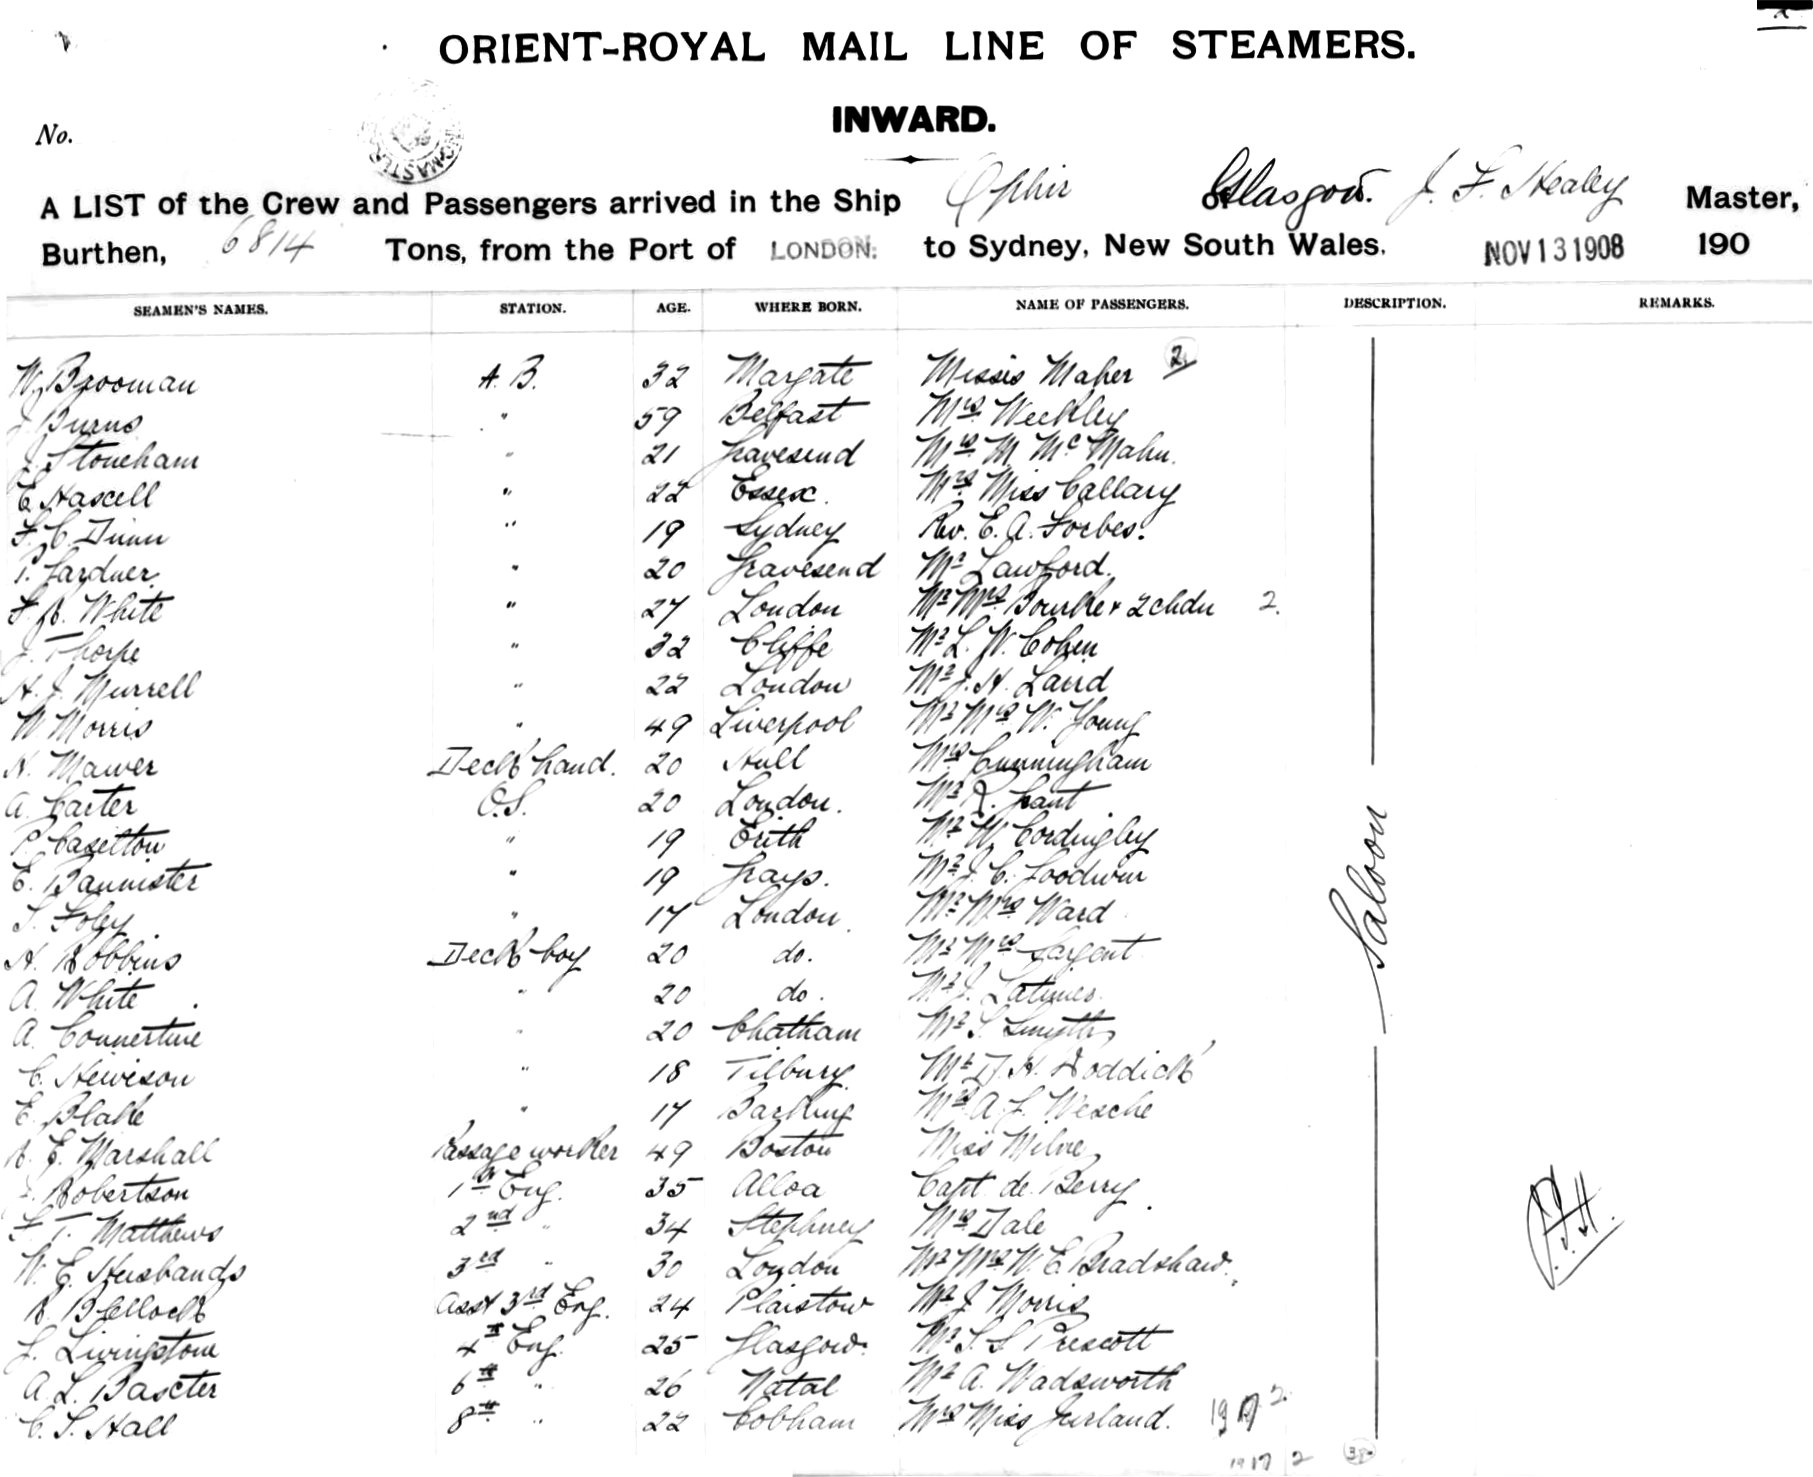 ORIENT-ROYAL MAIL LINE OF STEAMERS.
INWARD.
No.
A LIST of the Crew and Passengers arrived in the Ship Ophir of Glasgow. J. F. Healey Master,
Burthen, 6814 Tons, from the Port of LONDON. to Sydney, New South Wales. NOV 13 1908 190
SEAMEN'S NAMES. STATION. AGE. WHERE BORN. NAME OF PASSENGERS. DESCRIPTION. REMARKS.
W. Brooman A.B. 32 Margate Misses Maher 2
J. Burns " 59 Belfast Mrs Weekley
J. Stoneham " 21 Gravesend Mrs M. McMahn.
E. Hascell " 22 Essex. Mrs Miss Callary
F. C. Dunn " 19 Sydney Rev. E. A. Forbes.
P. Gardner " 20 Gravesend Mr Lawford.
F. R. White " 27 London Mr Mrs Bourke & 2 chdn 2.
J. Thorpe " 32 Cliffe Mr L. W. Cohen
H. J. Murrell " 22 London Mr J. H. Laird
W. Morris " 49 Liverpool Mr Mrs W. Young
H. Mawer Deck hand. 20 Hull Mrs Cunningham
A. Carter O.S. 20 London. Mr R. Grant
P. Caselton " 19 Erith Mr W. Cordingley
E. Bannister " 19 Grays. Mr J. C. Goodwin
S. Foley " 17 London. Mr Mrs Ward
H. Robbins Deck boy 20 do. Mr Mrs Sargent
A. White " 20 do. Mr J. Latimer
A. Connertine " 20 Chatham Mr S. Smyth
C. Heweson " 18 Tilbury. Mr D. H. Doddick
E. Blake " 17 Barking Mrs A. J. Wesche
R. E. Marshall Passage worker 49 Boston Miss Milne
Robertson 1st Eng. 35 Alloa Capt. de Berry
F. T. Matthews 2nd " 34 Stephney Mrs Dale
W. E. Husbands 3rd " 30 London Mr Mrs W. E. Bradshaw.
R. Bellock Asst 3rd Eng. 24 Plaistow Mr J. Morris
J. Livingstone 4th Eng. 25 Glasgow. Mr S. S. Prescott
A. L. Baxter 6th " 26 Natal Mr A. Wadsworth
C. S. Hall 8th " 22 Cobham Mrs Miss Jurland. 19 17 2
Saloon
J.F.H.
19 17 2 38